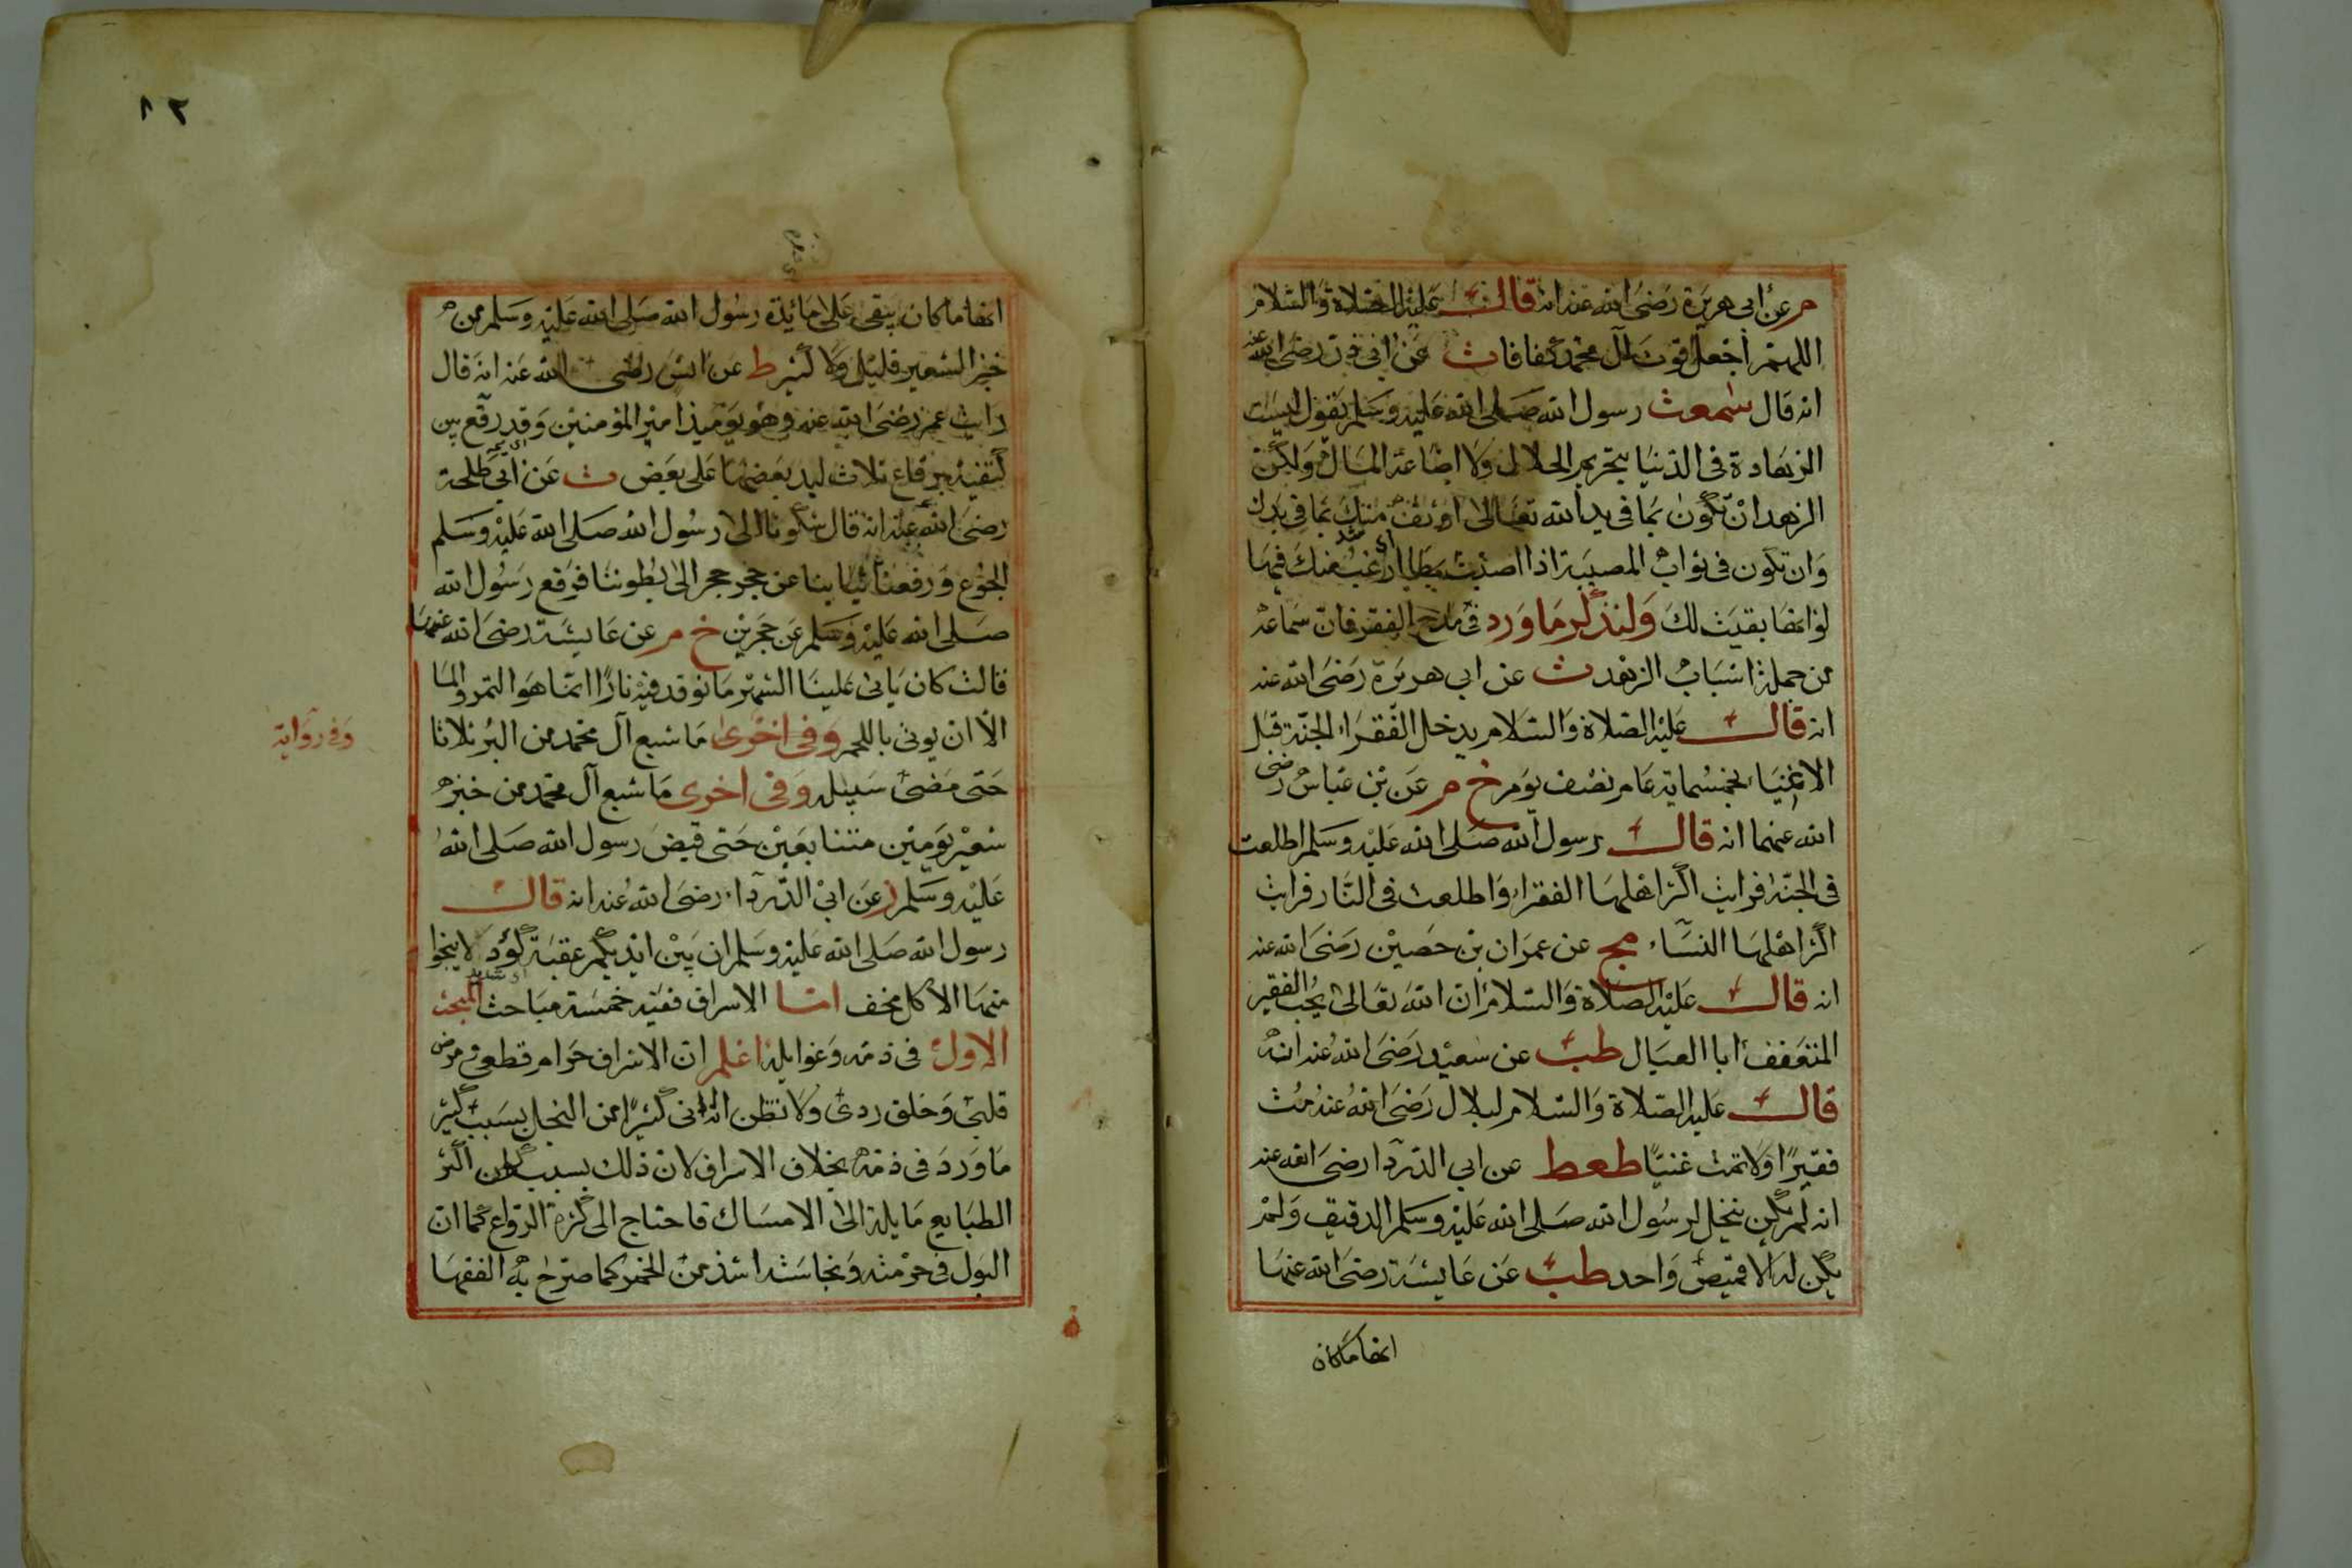 م عن ابى هريرة رضى الله عنه انه قال عليه الصلاة والسلام
اللهم اجعل قوت آل محمد كفافا ت عن ابى ذر رضى الله عنه
انه قال سمعت رسول الله صلى الله عليه وسلم يقول ليست
الزهادة فى الدنيا بتحريم الحلال ولا اضاعة المال ولكن
الزهد ان تكون بما فى يد الله تعالى اوثق منك بما فى يدك
وان تكون فى ثواب المصيبة اذا اصبت بها ارغب منك فيها
لو انها بقيت لك ولنذكر ما ورد فى مدح الفقر فان سماعه
من جملة اسباب الزهد ت عن ابى هريرة رضى الله عنه
انه قال عليه الصلاة والسلام يدخل الفقراء الجنة قبل
الاغنياء بخمسماية عام نصف يوم خ م عن بن عباس رضى
الله عنهما انه قال رسول الله صلى الله عليه وسلم اطلعت
فى الجنة فرايت اكثر اهلها الفقراء واطلعت فى النار فرايت
اكثر اهلها النساء مج عن عمران بن حصين رضى الله عنه
انه قال عليه الصلاة والسلام ان الله تعالى يحب الفقير
المتعفف ابا العيال طب عن سعيد رضى الله عنه انه
قال عليه الصلاة والسلام لبلال رضى الله عنه مت
فقيرا ولا تمت غنيا طعط عن ابى الدردا رضى الله عنه
انه لم يكن ينخل لرسول الله صلى الله عليه وسلم الدقيق ولم
يكن له الا قميص واحد طب عن عايشة رضى الله عنها
انها ما كان
١٢
انها ما كان يبقى على مائدة رسول الله صلى الله عليه وسلم من
خبز الشعير قليل ولا كثير ط عن انس رضى الله عنه انه قال
رايت عمر رضى الله عنه وهو يوميذ امير المؤمنين وقد رقع بين
كتفيه برقاع ثلاث لبد بعضها على بعض ت عن ابى طلحة
رضى الله عنه انه قال شكونا الى رسول الله صلى الله عليه وسلم
الجوع ورفعنا ثيابنا عن حجر حجر الى بطوننا فرفع رسول الله
صلى الله عليه وسلم عن حجرين خ م عن عايشة رضى الله عنها
قالت كان ياتى علينا الشهر ما نوقد فيه نارا انما هو التمر والما
الا ان يوتى باللحم وفى اخرى ما شبع آل محمد من البر ثلاثا
وفى رواية
حتى مضى سبيله وفى اخرى ما شبع آل محمد من خبز
شعير يومين متتابعين حتى قبض رسول الله صلى الله
عليه وسلم ز عن ابى الدرداء رضى الله عنه انه قال
رسول الله صلى الله عليه وسلم ان بين ايديكم عقبة كؤد لا ينجوا
اى شديد
منها الا كل مخف اما الاسراف ففيه خمسة مباحث المبحث
الاول فى ذمه وغوايله اعلم ان الاسراف حرام قطعى ومرض
قلبى وخلق ردى ولا تظن انه ادنى كثيرا من البخل بسبب كثير
ما ورد فى ذمه بخلاف الاسراف لان ذلك بسبب كون اكثر
الطبايع مايلة الى الامساك فاحتاج الى كثرة الرواع كما ان
البول فى حرمته ونجاسته اشد من الخمر كما صرح به الفقها